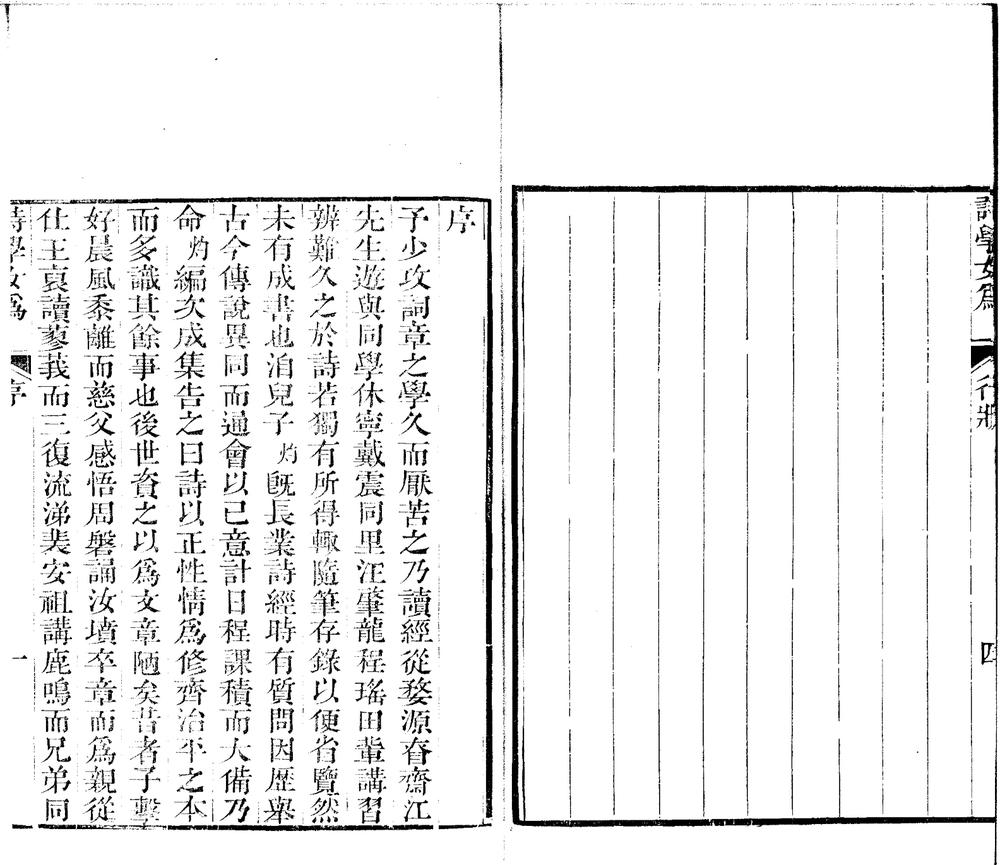 詩學女爲
行狀
四
序
予少攻詞章之學久而厭苦之乃讀經從婺源昚齋江
先生遊與同學休寧戴震同里汪肇龍程瑤田輩講習
辨難久之於詩若獨有所得輙隨筆存錄以便省覽然
未有成書也洎兒子灼旣長業詩經時有質問因歷舉
古今傳說異同而通會以已意計日程課積而大備乃
命灼編次成集告之曰詩以正性情爲修齊治平之本
而多識其餘事也後世資之以爲文章陋矣昔者子擊
好晨風黍離而慈父感悟周磐誦汝墳卒章而爲親從
仕王裒讀蓼莪而三復流涕裴安祖講鹿鳴而兄弟同
詩學女爲
序
一